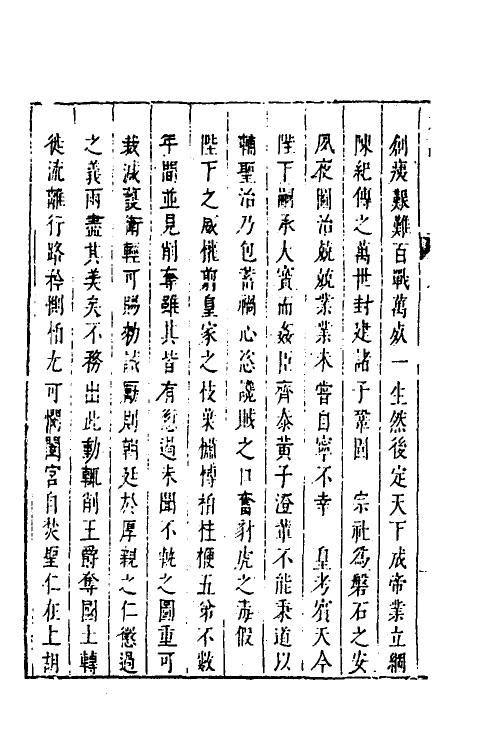 創痍艱難百戰萬死一生然後定天下成帝業立綱
陳紀傳之萬世封建諸子鞏固 宗社爲磐石之安
夙夜圖治兢兢業業未嘗自寧不幸 皇考賓天今
陛下嗣承大寶而姦臣齊泰黃子澄輩不能秉道以
輔聖治乃包蓄禍心恣讒賊之口奮豺虎之毒假
陛下之威權剪皇家之枝葉橚榑柏桂楩五弟不數
年間並見削奪雖其皆有愆過未聞不軌之圖重可
裁减護衛輕可賜勑誡勵則朝廷於厚親之仁懲過
之義兩盡其美矣不務出此動輒削王爵奪國土轉
徙流離行路矜惻柏尤可憫闔宮自焚聖仁在上胡